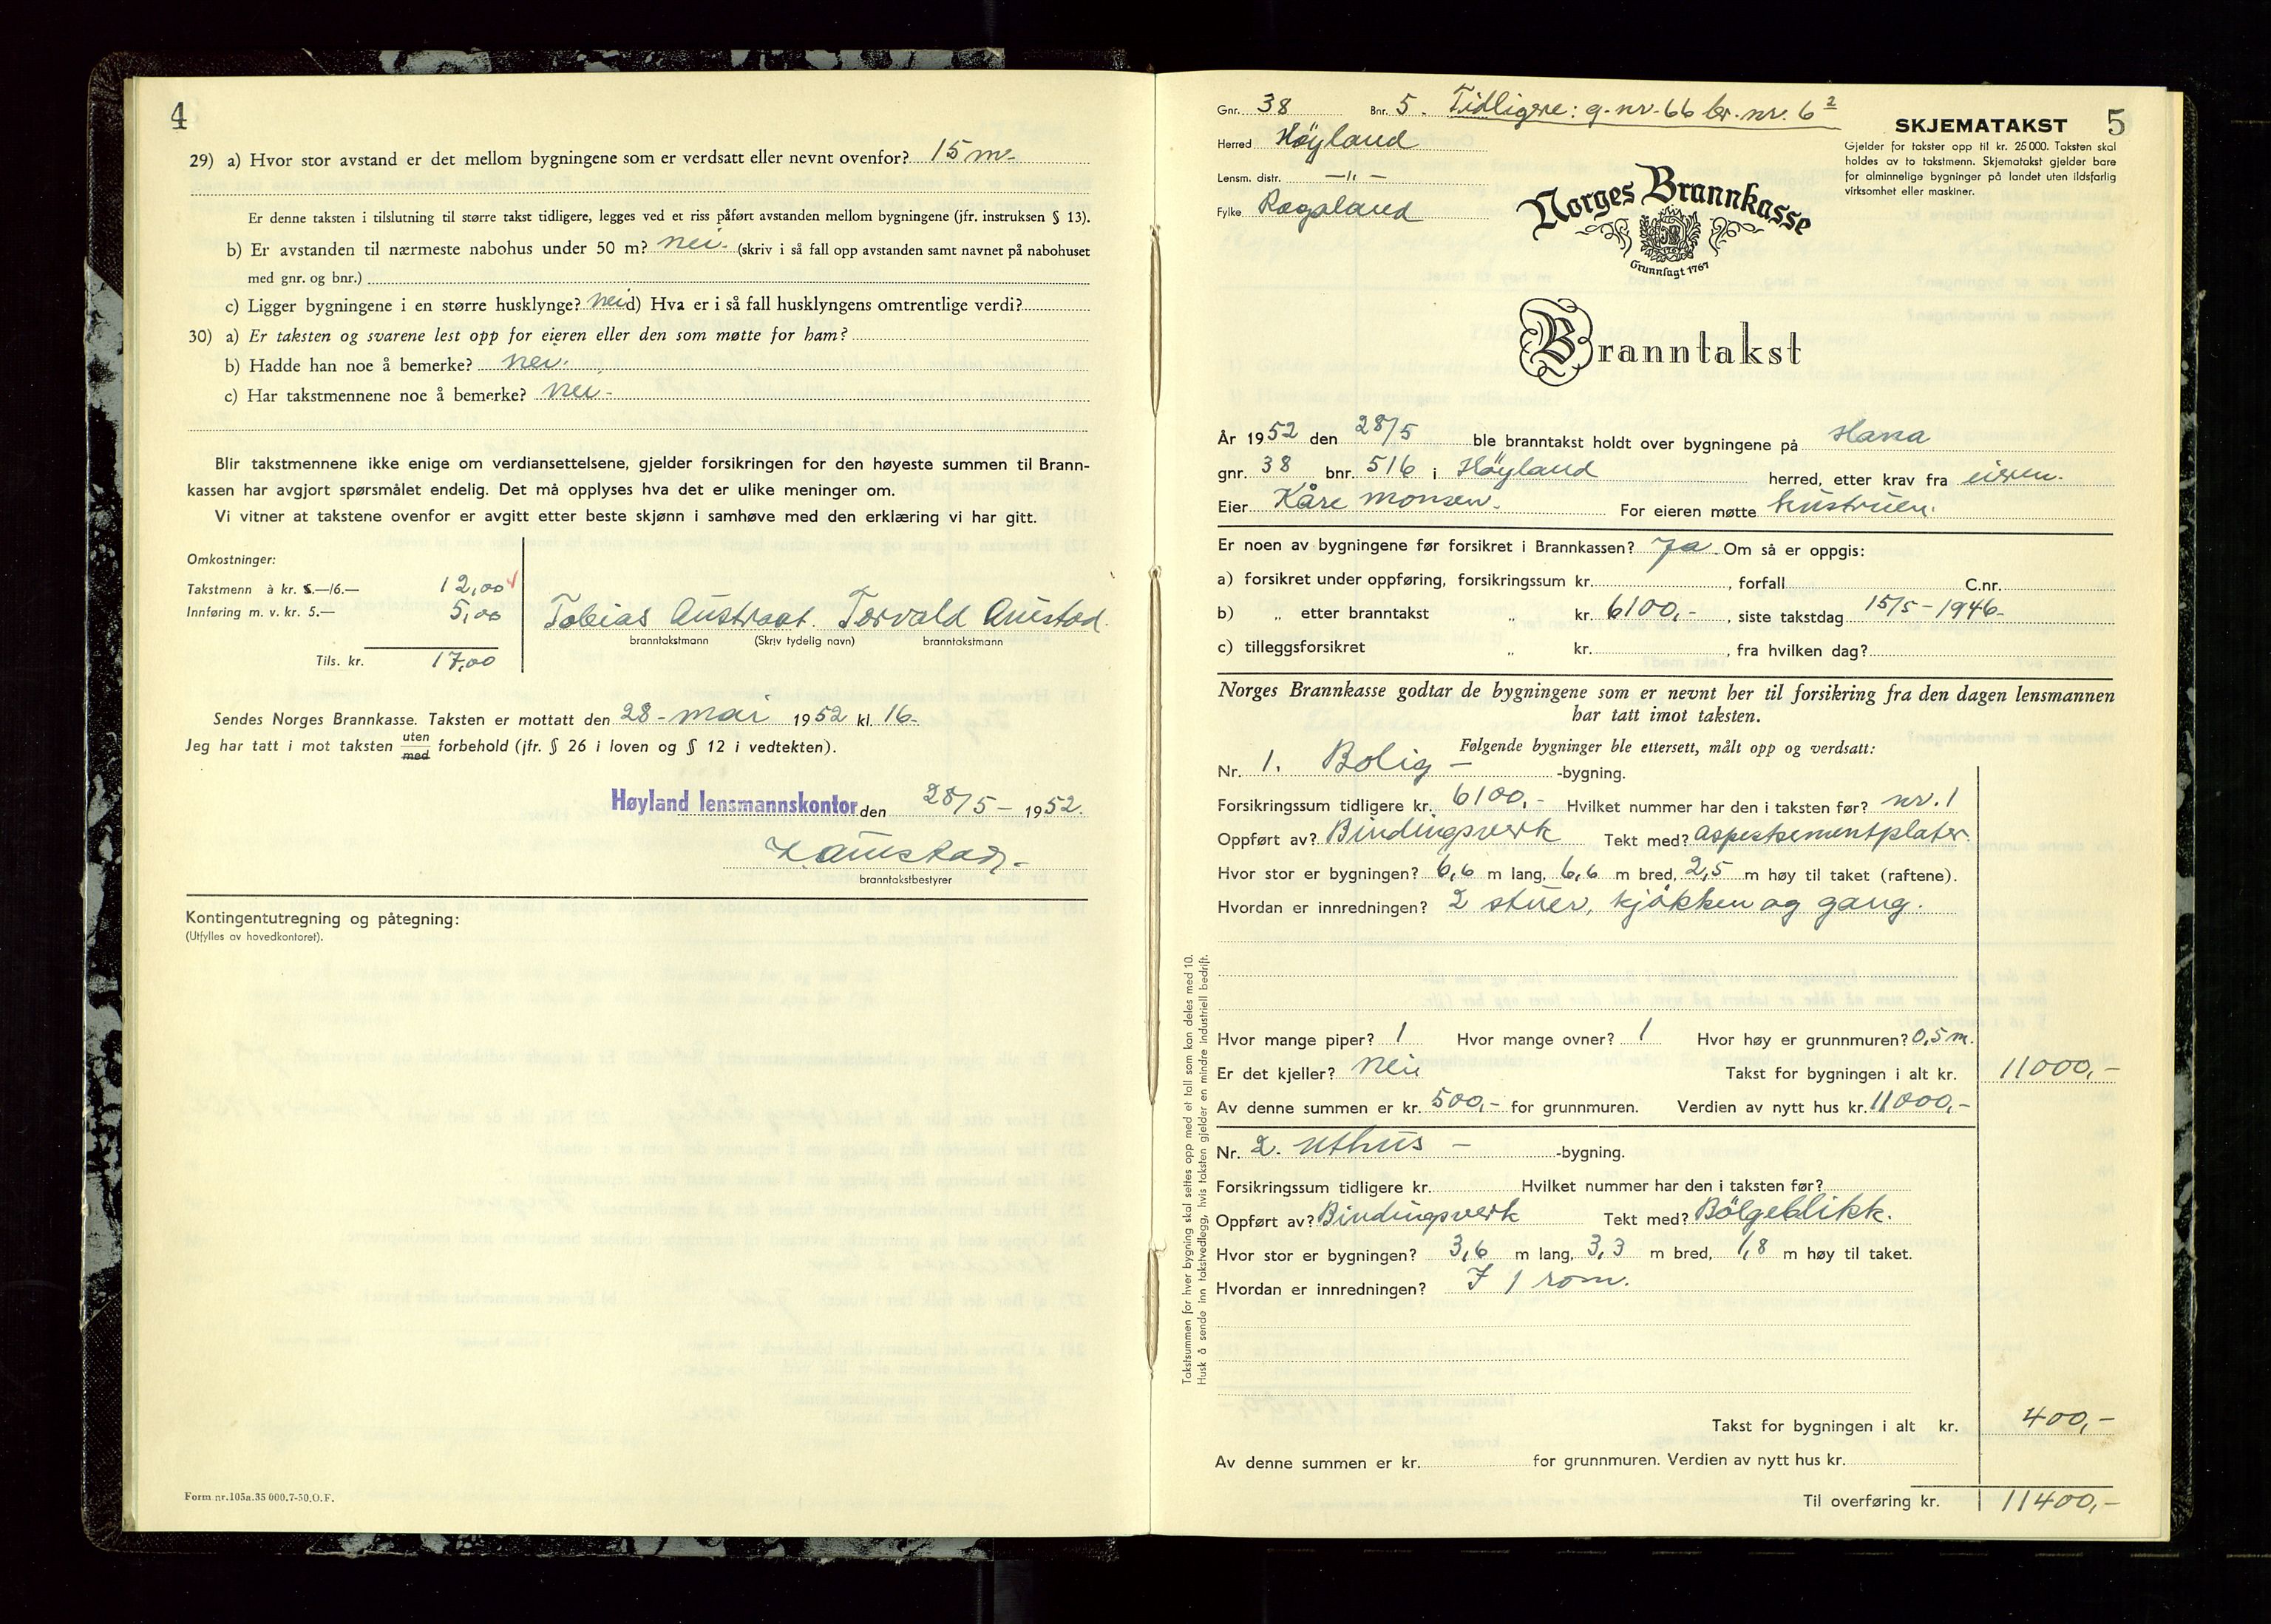 4
29) a) Hvor stor avstand er det mellom bygningene som er verdsatt eller nevnt ovenfor? 15 m.
Er denne taksten i tilslutning til større takst tidligere, legges ved et riss påført avstanden mellom bygningene (jfr. instruksen § 13).
b) Er avstanden til nærmeste nabohus under 50 m? nei. (skriv i så fall opp avstanden samt navnet på nabohuset
med gnr. og bnr.)
c) Ligger bygningene i en større husklynge? nei d) Hva er i så fall husklyngens omtrentlige verdi?
30) a) Er taksten og svarene lest opp for eieren eller den som møtte for ham?
b) Hadde han noe å bemerke? nei.
c) Har takstmennene noe å bemerke? nei -
Blir takstmennene ikke enige om verdiansettelsene, gjelder forsikringen for den høyeste summen til Brann-
kassen har avgjort spørsmålet endelig. Det må opplyses hva det er ulike meninger om.
Vi vitner at takstene ovenfor er avgitt etter beste skjønn i samhøve med den erklæring vi har gitt.
Omkostninger:
Takstmenn à kr. 5.—/6.— 12,00
Innføring m. v. kr. 5.— 5,00
Tils. kr. 17,00
Tobias Austraat. Torvald Austad.
branntakstmann (Skriv tydelig navn) branntakstmann
Sendes Norges Brannkasse. Taksten er mottatt den 28 - mai 1952 kl. 16-
Jeg har tatt i mot taksten uten med forbehold (jfr. § 26 i loven og § 12 i vedtekten).
Høyland lensmannskontor den 28/5 - 1952.
branntakstbestyrer
Kontingentutregning og påtegning:
(Utfylles av hovedkontoret).
Form nr. 105a. 35 000. 7-50. O. F.
Gnr. 38 Bnr. 5. Tidligere: g.nr. 66 br. nr. 6²
SKJEMATAKST 5
Herred Höyland
Gjelder for takster opp til kr. 25 000. Taksten skal
holdes av to takstmenn. Skjematakst gjelder bare
for alminnelige bygninger på landet uten ildsfarlig
virksomhet eller maskiner.
Lensm. distr. —"—
Fylke Rogaland
Norges Brannkasse
Grunnlagt 1767
Branntakst
År 1952 den 28/5 ble branntakst holdt over bygningene på Hana
gnr. 38 bnr. 516 i Höyland herred, etter krav fra eieren.
Eier Kåre Monsen. For eieren møtte hustruen.
Er noen av bygningene før forsikret i Brannkassen? Ja. Om så er oppgis:
a) forsikret under oppføring, forsikringssum kr. , forfall C.nr.
b) „ etter branntakst „ kr. 6100,- , siste takstdag 15/5 - 1946.
c) tilleggsforsikret „ kr. , fra hvilken dag?
Norges Brannkasse godtar de bygningene som er nevnt her til forsikring fra den dagen lensmannen
har tatt imot taksten.
Følgende bygninger ble ettersett, målt opp og verdsatt:
Nr. 1. Bolig - -bygning.
Forsikringssum tidligere kr. 6100,- Hvilket nummer har den i taksten før? nr. 1
Oppført av? Bindingsverk Tekt med? Aspestsementplater.
Hvor stor er bygningen? 6,6 m lang, 6,6 m bred, 2,5 m høy til taket (raftene).
Hvordan er innredningen? 2 stuer, kjökken og gang.
Hvor mange piper? 1 Hvor mange ovner? 1 Hvor høy er grunnmuren? 0,5 m.
Er det kjeller? Nei Takst for bygningen i alt kr. 11000,-
Av denne summen er kr. 500,- for grunnmuren. Verdien av nytt hus kr. 11000,-
Nr. 2. Uthus - -bygning.
Forsikringssum tidligere kr. Hvilket nummer har den i taksten før?
Oppført av? Bindingsverk Tekt med? Bölgeblikk.
Hvor stor er bygningen? 3,6 m lang, 3,3 m bred, 1,8 m høy til taket.
Hvordan er innredningen? I 1 rom.
Takst for bygningen i alt kr. 400,-
Av denne summen er kr. for grunnmuren. Verdien av nytt hus kr.
Til overføring kr. 11400,-
Takstsummen for hver bygning skal settes opp med et tall som kan deles med 10.
Husk å sende inn takstvedlegg, hvis taksten gjelder en mindre industriell bedrift.